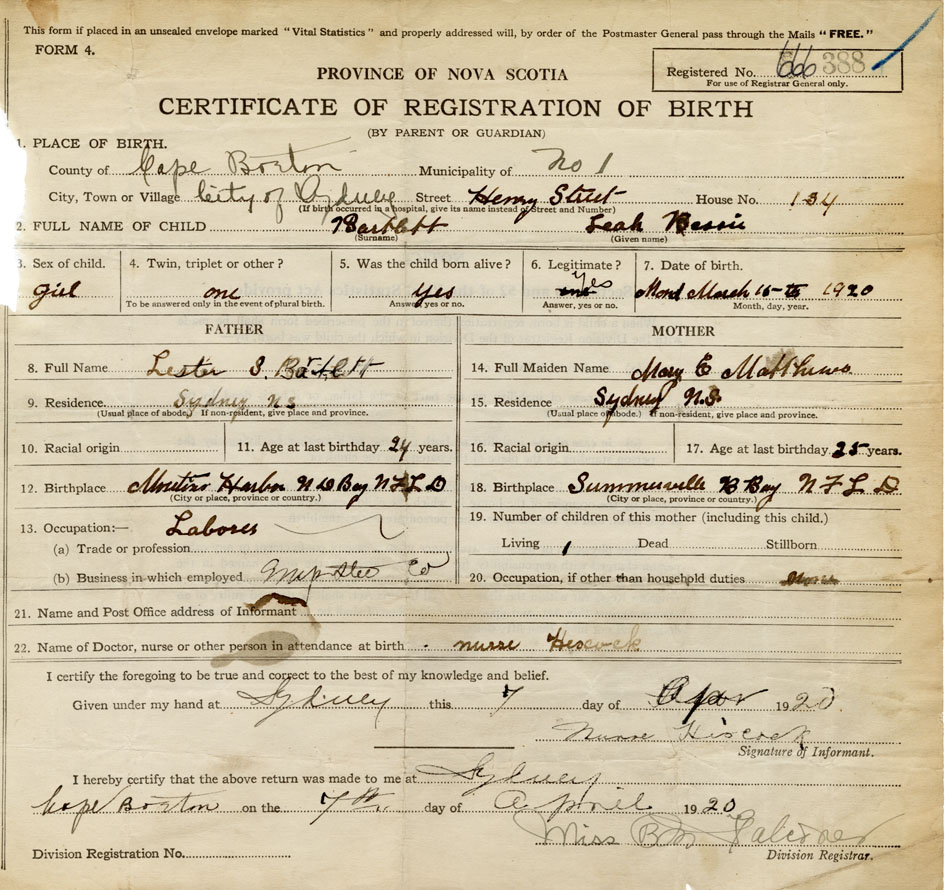 This form if placed in an unsealed envelope marked "Vital Statistics" and properly addressed will, by order of the Postmaster General pass through the Mails "FREE."
FORM 4.
PROVINCE OF NOVA SCOTIA
Registered No. 666 388
For use of Registrar General only.
CERTIFICATE OF REGISTRATION OF BIRTH
(BY PARENT OR GUARDIAN)
1. PLACE OF BIRTH.
County of Cape Breton Municipality of No 1
City, Town or Village City of Sydney Street Henry Street House No. 134
(If birth occurred in a hospital, give its name instead of Street and Number)
2. FULL NAME OF CHILD Bartlett Leah Bessie
(Surname) (Given name)
3. Sex of child. 4. Twin, triplet or other? 5. Was the child born alive? 6. Legitimate? 7. Date of birth.
girl one Yes yes Mond March 15 1920
To be answered only in the event of plural birth. Answer yes or no. Answer, yes or no. Month, day, year.
FATHER MOTHER
8. Full Name Lester S. Bartlett 14. Full Maiden Name Mary E Matthews
9. Residence. Sydney NS 15. Residence Sydney N.S
(Usual place of abode) If non-resident, give place and province. (Usual place of abode.) If non-resident, give place and province.
10. Racial origin 11. Age at last birthday 24 years. 16. Racial origin 17. Age at last birthday 25 years.
12. Birthplace Harbor N D Bay NFLD 18. Birthplace Summerville B Bay NFLD
(City or place, province or country.) (City or place, province or country.)
13. Occupation:— Laborer 19. Number of children of this mother (including this child.)
(a) Trade or profession Living 1 Dead Stillborn
(b) Business in which employed Co 20. Occupation, if other than household duties
21. Name and Post Office address of Informant
22. Name of Doctor, nurse or other person in attendance at birth nurse Hiscock
I certify the foregoing to be true and correct to the best of my knowledge and belief.
Given under my hand at Sydney this 7 day of Apr 1920
Nurse Hiscock
Signature of Informant.
I hereby certify that the above return was made to me at Sydney
Cape Breton on the 7th day of April 1920
Miss B M
Division Registration No. Division Registrar.